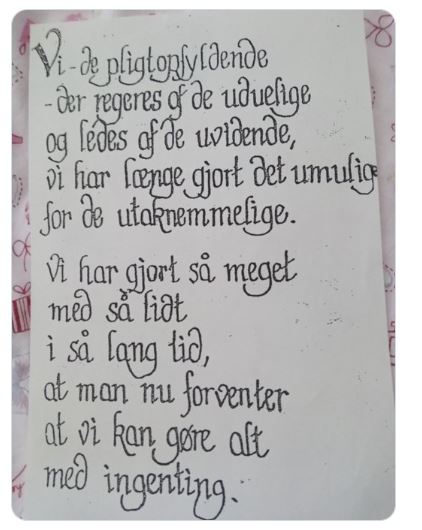 Vi - de pligtopfyldende
- der regeres af de uduelige
og ledes af de uvidende,
vi har længe gjort det umulige
for de utaknemmelige.
Vi har gjort så meget
med så lidt
i så lang tid,
at man nu forventer
at vi kan gøre alt
med ingenting.